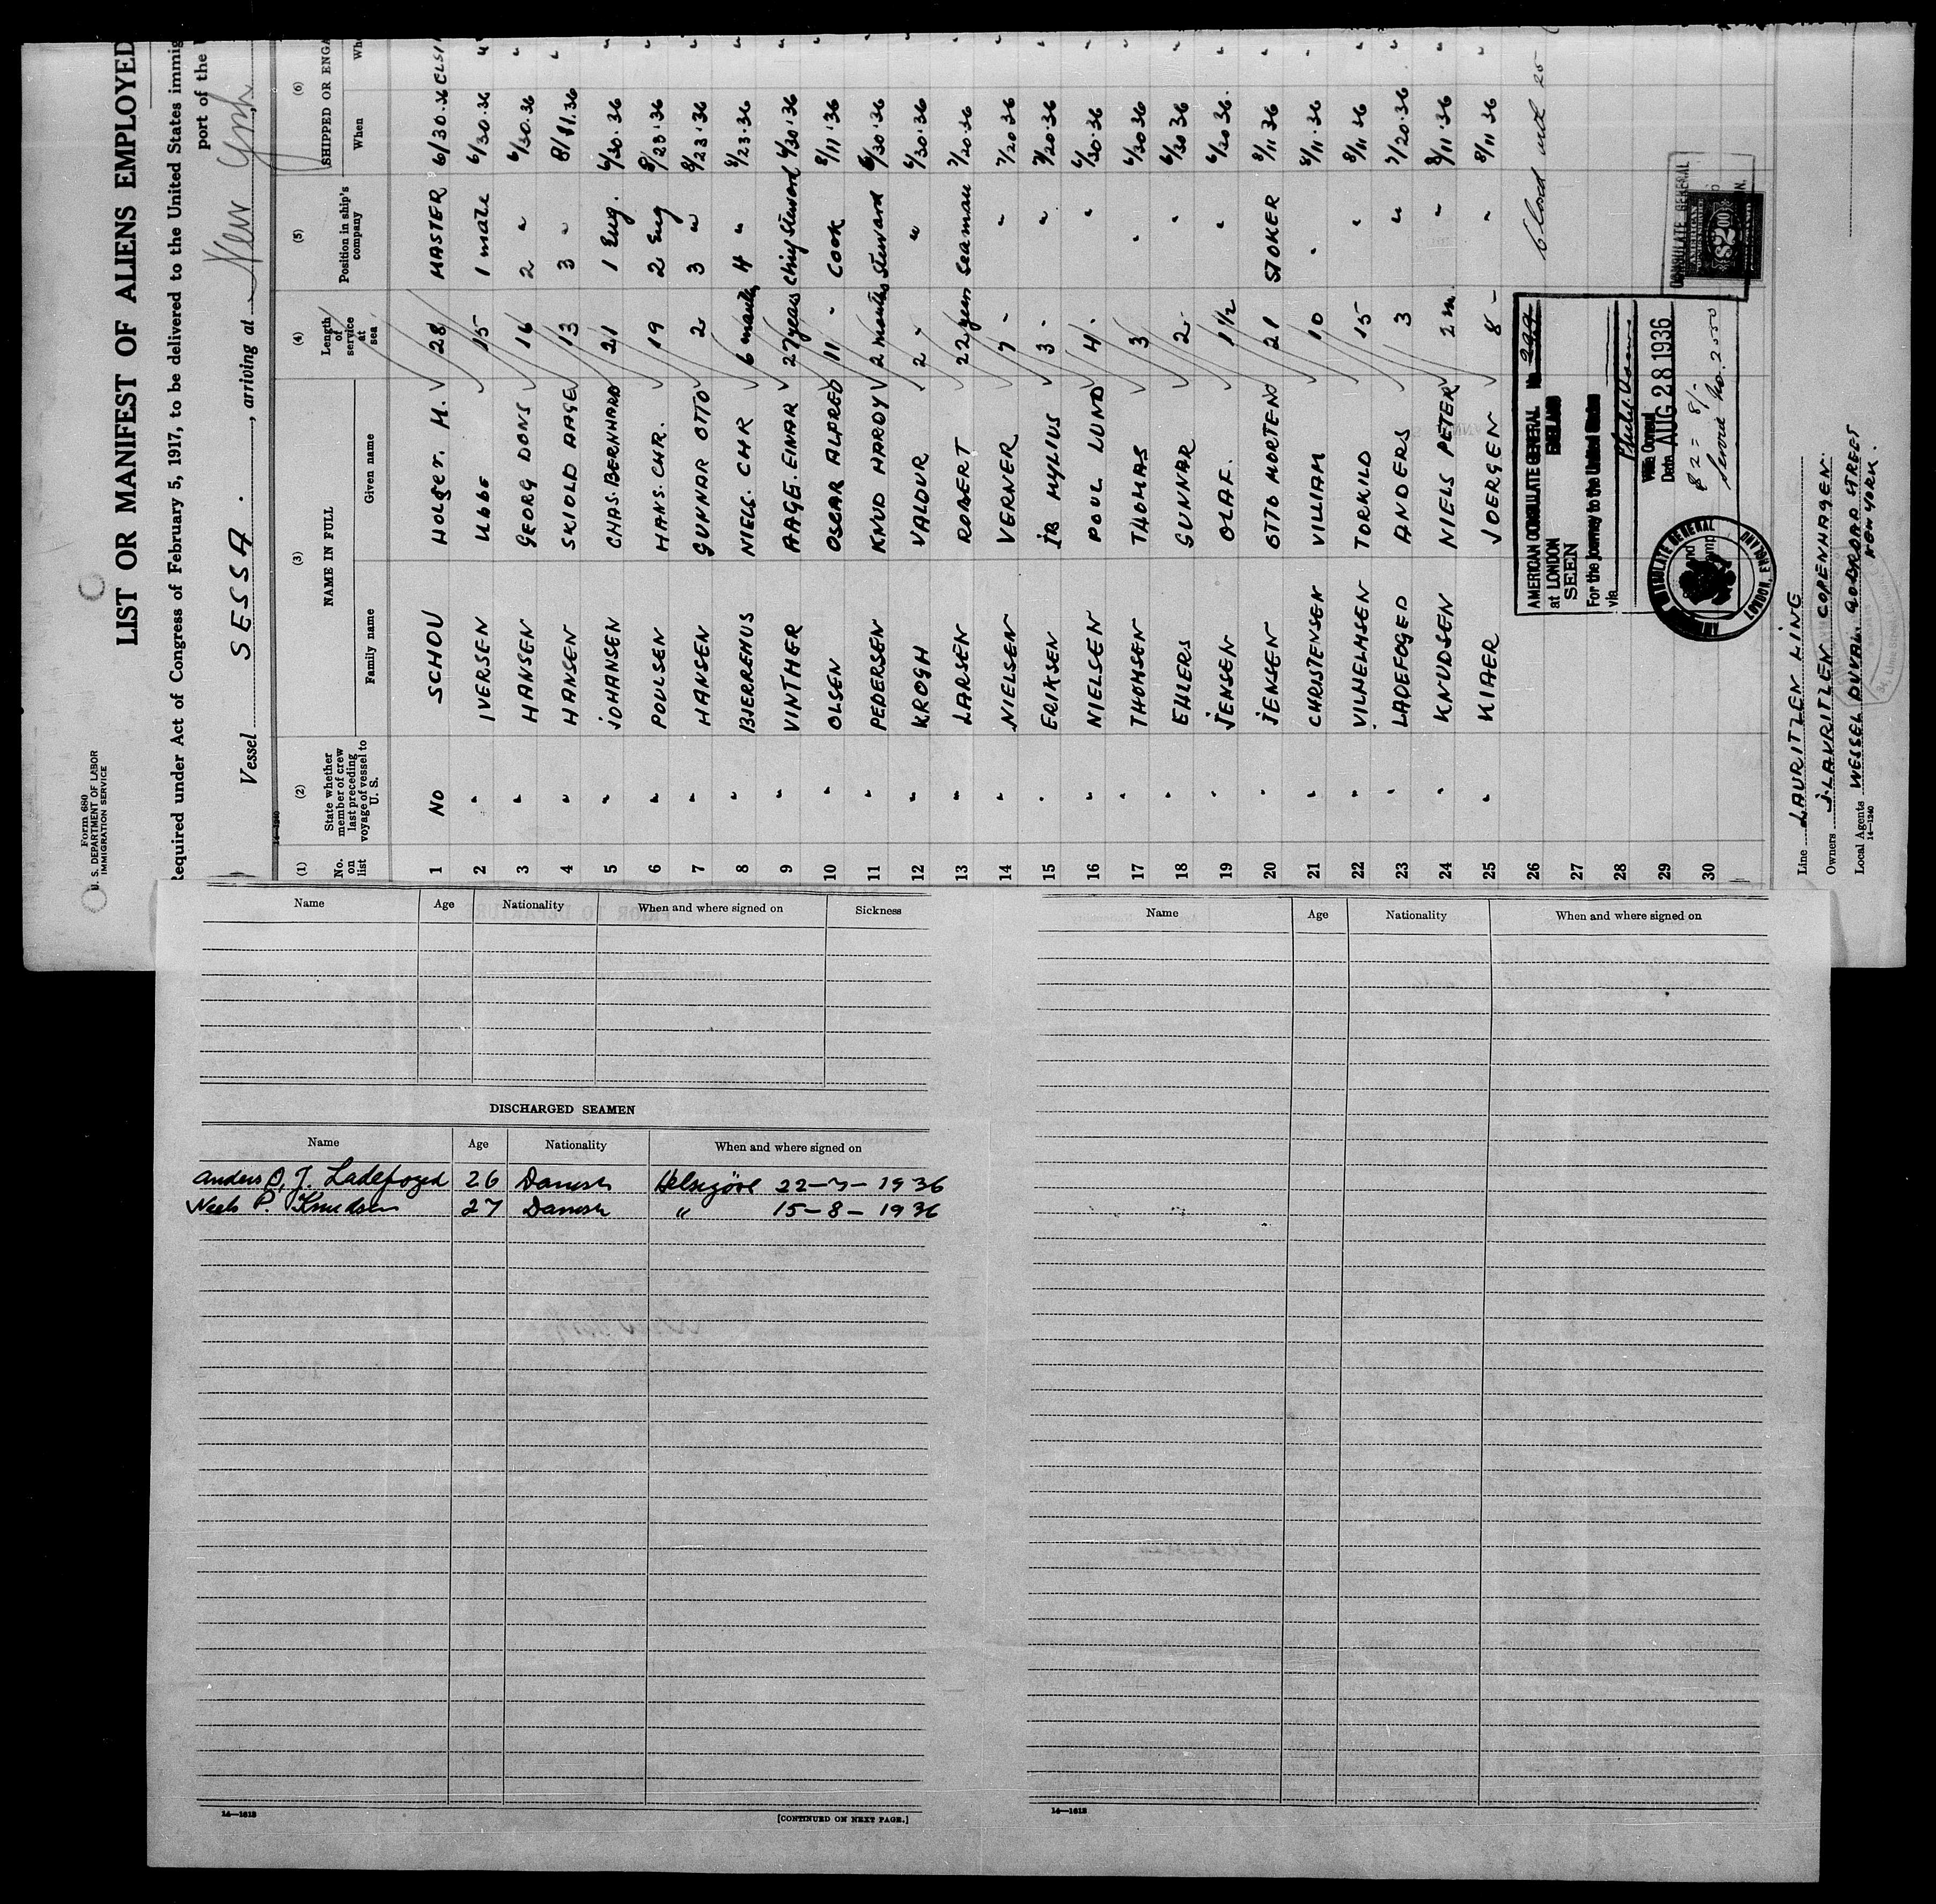 Form 680
U. S. DEPARTMENT OF LABOR
IMMIGRATION SERVICE
LIST OR MANIFEST OF ALIENS EMPLOYED
Required under Act of Congress of February 5, 1917, to be delivered to the United States immig
port of the
Vessel SESSA. , arriving at New York
14—1240
(1) (2) (3) (4) (5) (6)
No. on list State whether member of crew last preceding voyage of vessel to U. S. NAME IN FULL Length of service at sea Position in ship's company SHIPPED OR ENGA
Family name Given name When Whe
1 NO SCHOU Holger. M. 28 MASTER 6/30.36 ELSI
2 " IVERSEN Ubbe 15 1 mate 6/30.36 "
3 " HANSEN GEORG DONS 16 2 " 6/30.36 "
4 " HANSEN SKIOLD AAGE 13 3 " 8/11.36 "
5 " JOHANSEN CHAS. BERNHARD 21 1 Eng. 6/30.36 "
6 " POULSEN HANS. CHR. 19 2 Eng 8/23.36 "
7 " HANSEN GUNNAR OTTO 2 3 " 8/23.36 "
8 " BJERREHUS NIELS. CHR 6 months 4 " 6/23.36 "
9 " VINTHER AAGE. EINAR 27 years Chief Steward 6/30.36 "
10 " OLSEN OSCAR ALFRED 11 - COOK 8/11.36 "
11 " PEDERSEN KNUD HARDY 2 months Steward 6/30.36 "
12 " KROGH VALDUR 2 - " 6/30.36 "
13 " LARSEN ROBERT 22 years Seaman 7/20.36 "
14 " NIELSEN VERNER 7 - " 7/20.36 "
15 " ERIKSEN IB MYLIUS 3 - " 7/20.36 "
16 " NIELSEN POUL LUND 4 - " 6/30.36 "
17 " THOMSEN THOMAS 3 " 6/30 36 "
18 " EHLERS GUNNAR 2 " 6/30 36 "
19 " JENSEN OLAF. 1 1/2 " 6/20 36. "
20 " JENSEN OTTO MORTEN 21 STOKER 8/11 36 "
21 " CHRISTENSEN VILLIAM 10 " 8/11.36 "
22 " VILHELMSEN TORKILD 15 " 8/11 36 "
23 " LADEFOGED ANDERS 3 " 7/20.36 "
24 " KNUDSEN NIELS PETER 2 m. " 8/11.36 "
25 " KIAER JOERGEN 8 - " 8/11 36 "
26 Closed with 25
27
28
29
30
AMERICAN CONSULATE GENERAL No. 299
at LONDON ENGLAND
SEEN
For the journey to the United States
via
Vice Consul
Date AUG 28 1936
$2 = 8/-
Service No. 2550
CONSULATE GENERAL
AMERICAN
$2.00
LONDON, ENGLAND
Line LAURITZEN LINE
Owners J. LAURITZEN COPENHAGEN.
Local Agents WESSEL DUVAL. 90 BROAD STREET
NEW YORK.
14—1240
Name Age Nationality When and where signed on Sickness
DISCHARGED SEAMEN
Name Age Nationality When and where signed on
Anders P. J. Ladefoged 26 Danish Helsingör 22-7-1936
Niels P. Knudsen 27 Danish " 15-8-1936
14—1613
[CONTINUED ON NEXT PAGE.]
Name Age Nationality When and where signed on
14—1613